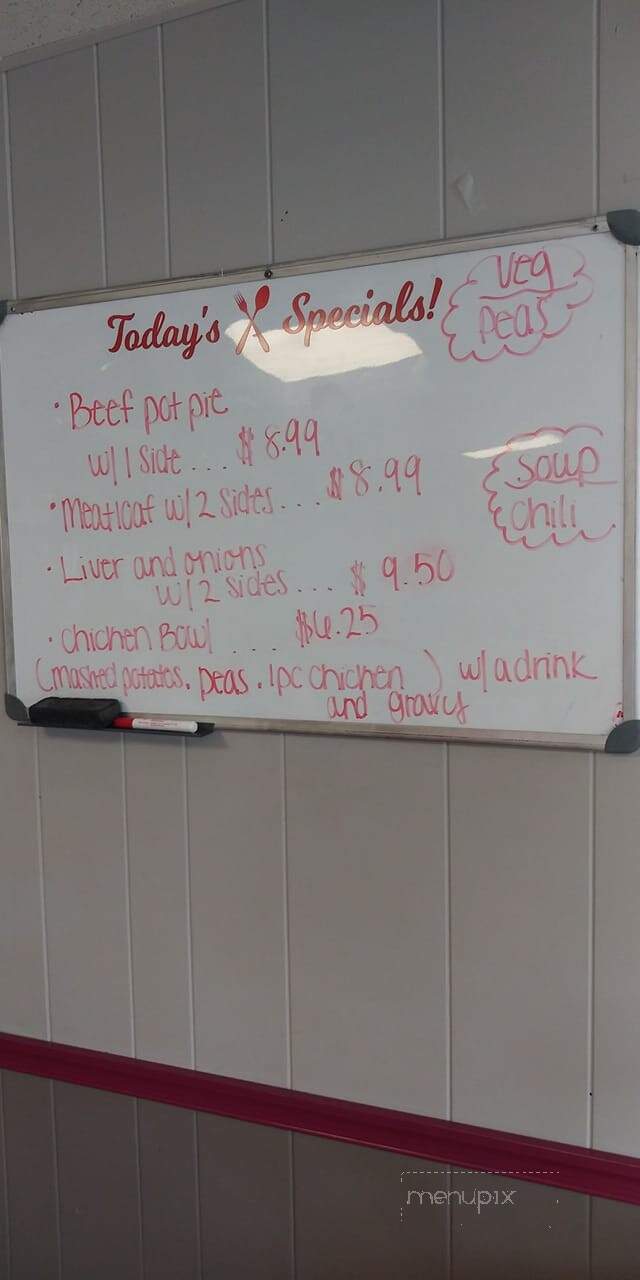 Today's Specials!
Veg
peas
• Beef pot pie
w/ 1 side ... $8.99
• Meatloaf w/ 2 sides... $8.99
soup
chili
• Liver and onions
w/ 2 sides .... $9.50
• Chicken Bowl .... $6.25
(mashed potatoes, peas, 1pc chicken and gravy) w/ a drink
menupix